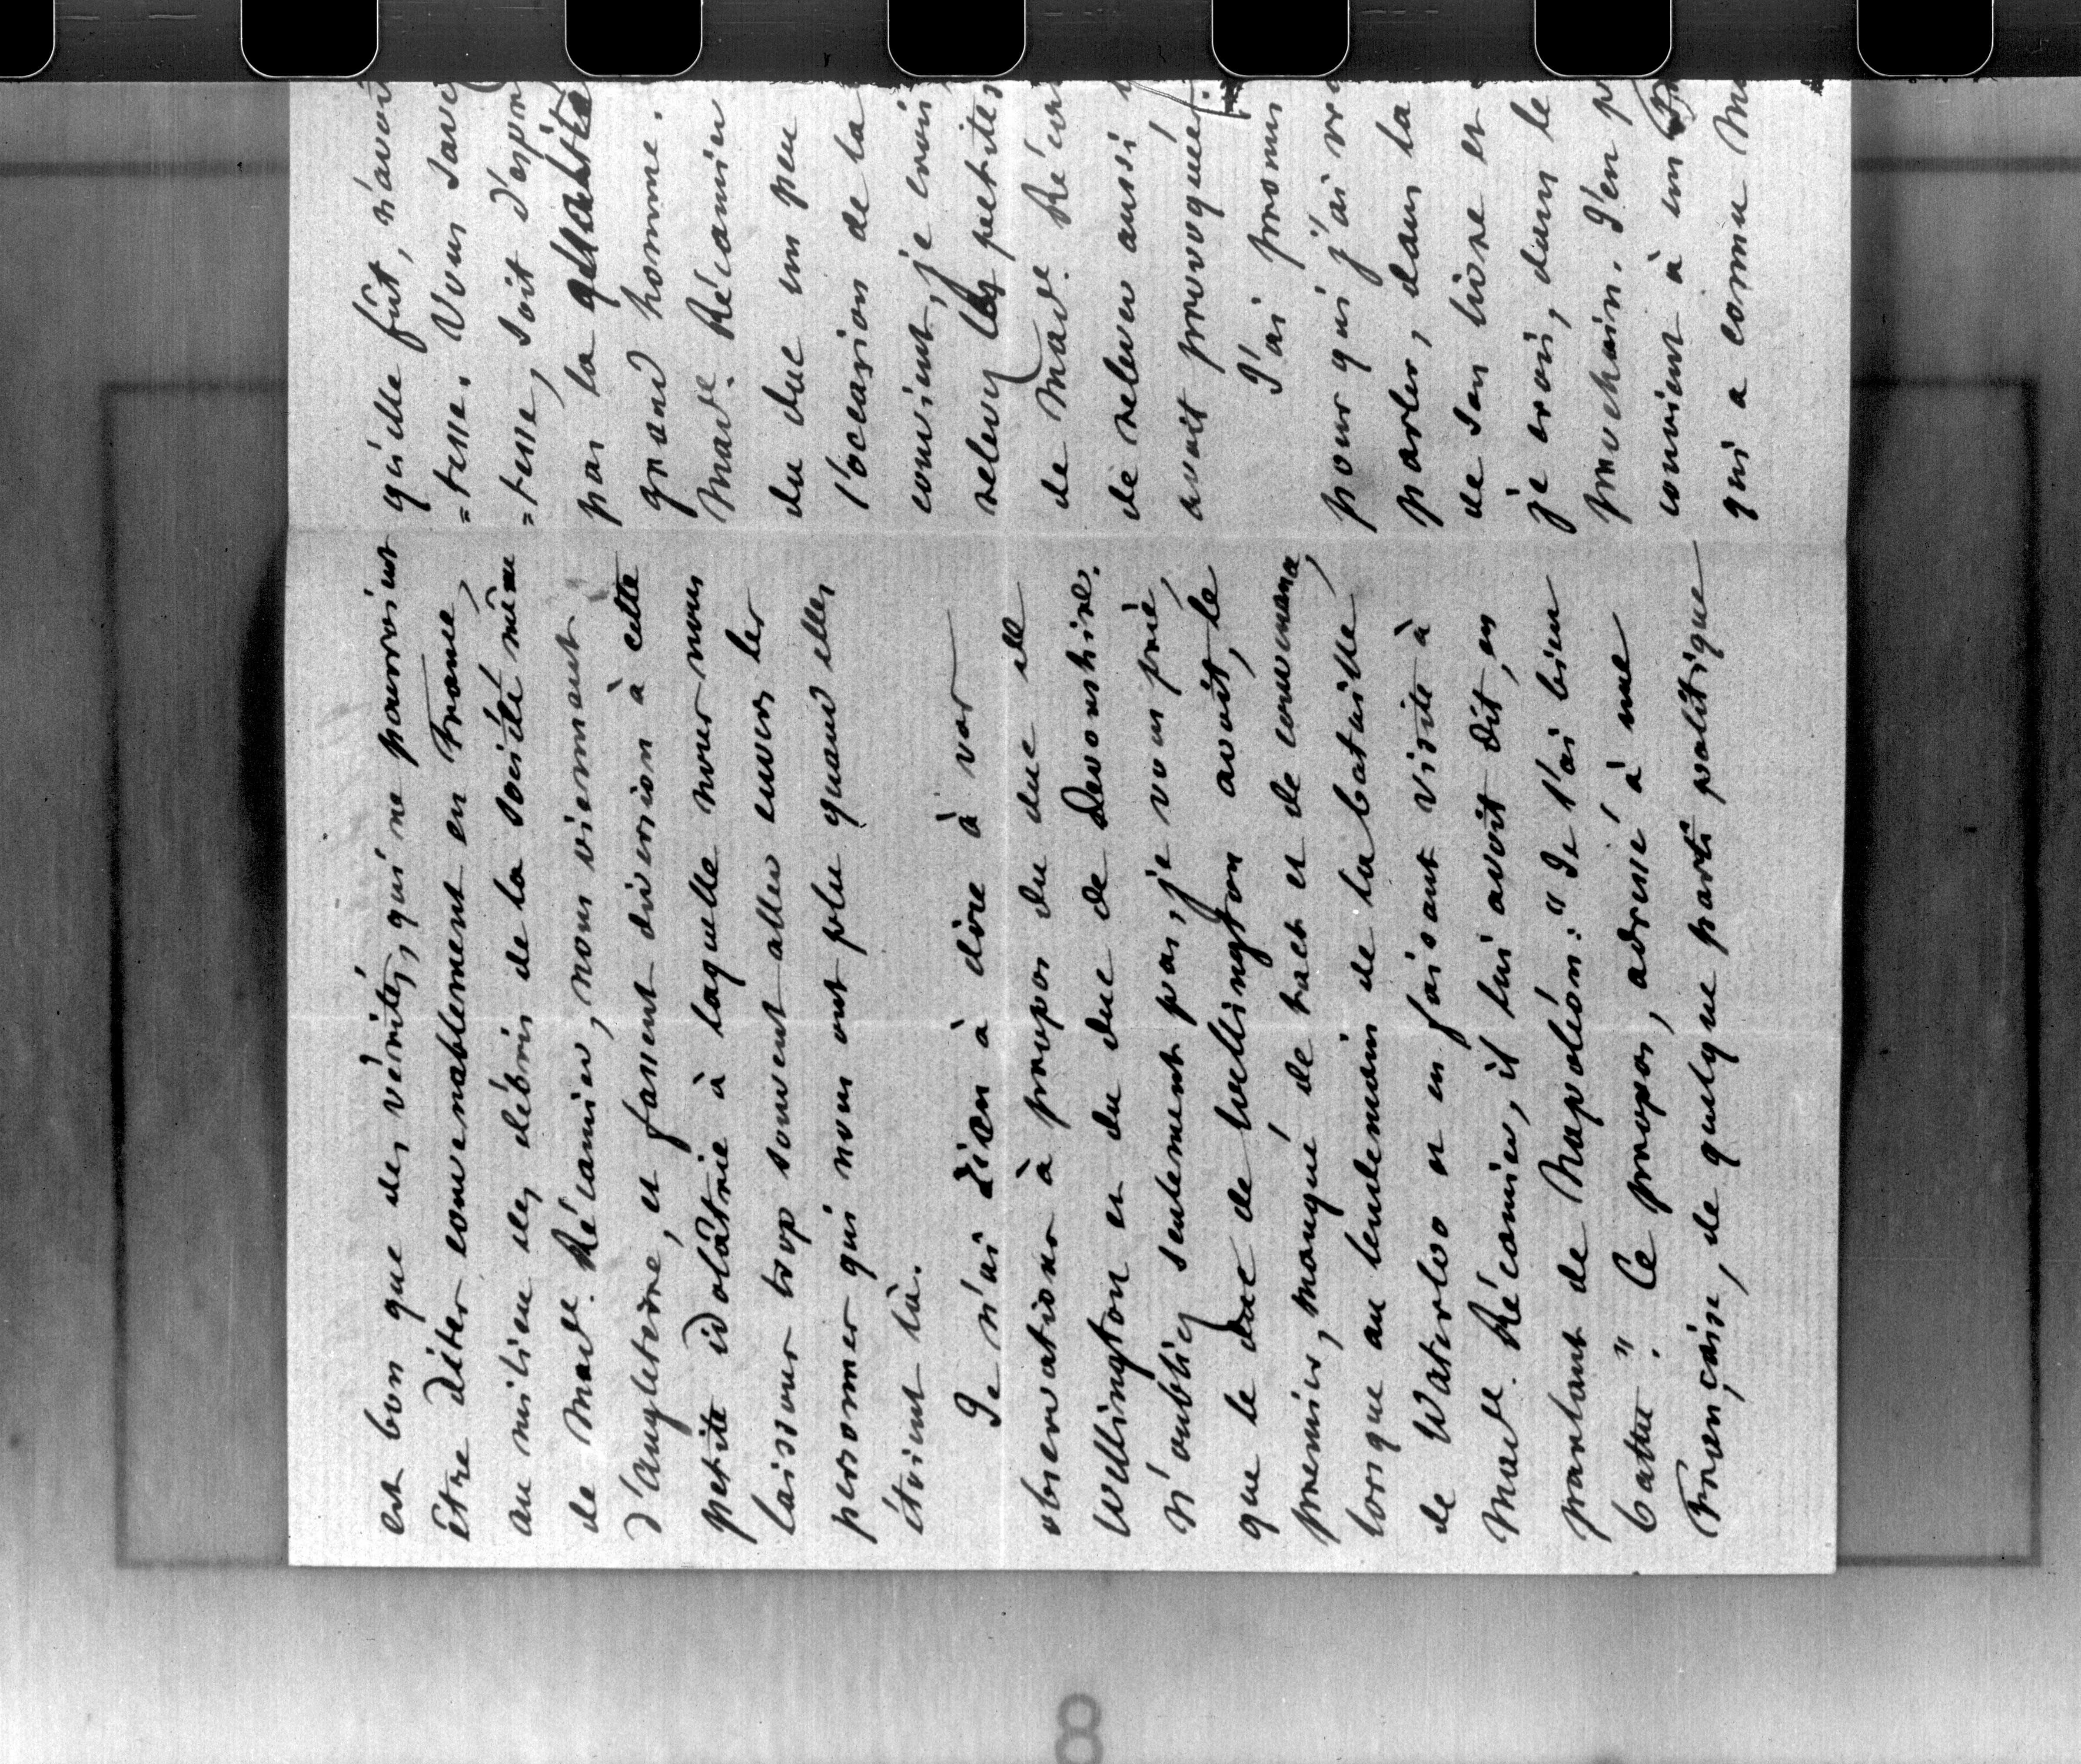 est bon que des vérités, qui ne pourroient
être dites convenablement en France,
au milieu des débris de la société même
de Made. Récamier, nous viennent
d'Angleterre, et fassent diversion à cette
petite idolâtrie à laquelle nous nous
laissons trop souvent aller envers les
personnes qui nous ont plu quand elles
étoient là.
Je n'ai rien à dire à vos
observations à propos du duc de
Wellington et du duc de Devonshire.
N'oubliez seulement pas, je vous prie,
que le duc de Wellington avoit, le
premier, manqué de tact et de convenance,
lorsque au lendemain de la bataille
de Waterloo et en faisant visite à
Made. Récamier, il lui avoit dit, en
parlant de Napoléon: "Je l'ai bien
battu". Ce propos, adressé à une
Française, de quelque parti politique
qu'elle fût, n'avoit
=tesse. Vous savez
=tesse, soit d'espr
par la
grand homme.
Made. Récamier
du duc un peu
l'occasion de la
convient, je crois
relevez les petites
de Made. Réca
de relever aussi
avoit provoquées.
J'ai promis
pour qui j'ai vra
parler, dans la
de son livre et
je crois, dans le
prochain. J'en p
convient à un
qui a connu Ma
8